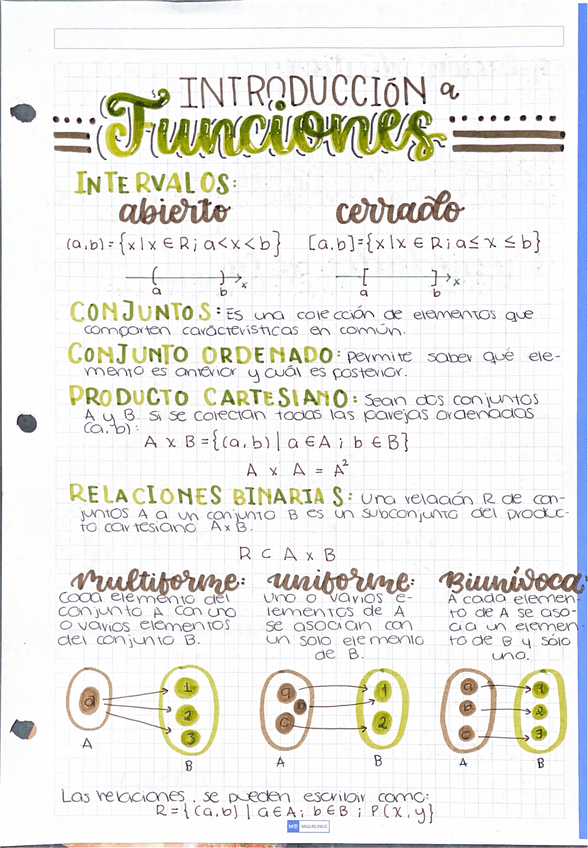 INTRODUCCIÓN a
Funciones
INTERVALOS:
abierto
cerrado
(a,b)={x|x ∈ R; a<x<b}
[a,b]={x|x ∈ R; a≤x≤b}
( ) x
a b
[ ] x
a b
CONJUNTOS: Es una colección de elementos que
comparten carácterísticas en común.
CONJUNTO ORDENADO: Permite saber qué ele-
mento es anterior y cuál es posterior.
PRODUCTO CARTESIANO: Sean dos conjuntos
A y B. si se colectan todas las parejas ordenadas
(a,b):
A x B = {(a,b) | a ∈ A ; b ∈ B}
A x A = A²
RELACIONES BINARIAS: Una relación R de con-
juntos A a un conjunto B es un subconjunto del produc-
to cartesiano AxB.
R ⊂ A x B
Multiforme:
Cada elemento del
conjunto A con uno
o varios elementos
del conjunto B.
uniforme:
Uno o varios e-
lementos de A
se asocian con
un solo elemento
de B.
Biunívoca:
A cada elemen-
to de A se aso-
cia un elemen-
to de B y sólo
uno.
a
1
2
3
A
B
a
b
c
1
2
A
B
a
b
c
1
2
3
A
B
Las relaciones, se pueden escribir como:
R={(a,b) | a∈A; b∈B ; P(x,y)}
MIQUELRIUS